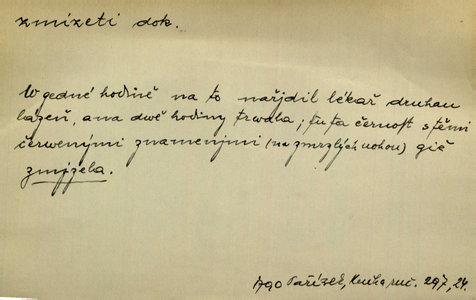 zmizeti dok.
W gedné hodině na to nařjdil lékař druhau
lázeň, a na dwě hodiny trwala; tu ta černost s těmi
červenými znamenjmi (na zmrzlých nohou) giž
zmjzela.
1790 Pařízek, Kniha ruč. 297, 24.